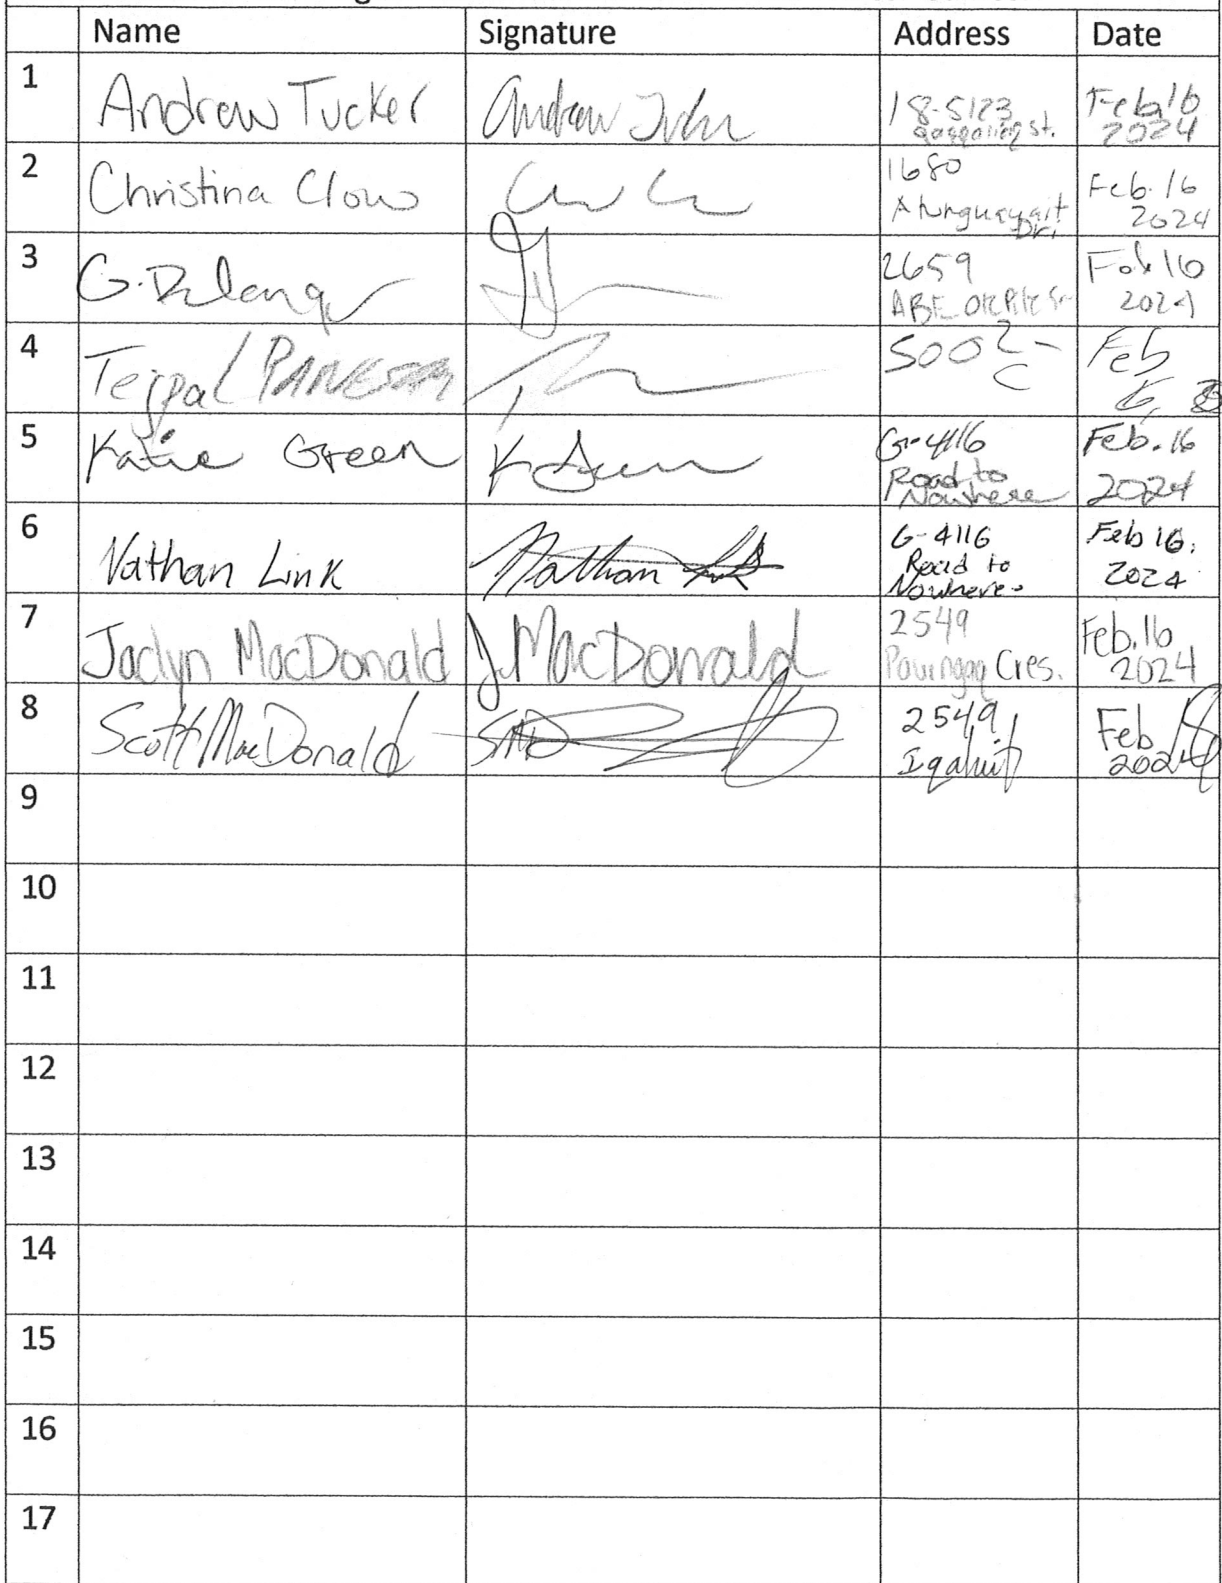 Name Signature Address Date
1 Andrew Tucker Andrew 18-5123 st. Feb 16 2024
2 Christina Clow 1680 Dr. Feb. 16 2024
3 G. 2659 ABE OKPIK Feb 16 2024
4 Tejpal 5002-C Feb
5 Katie Green K Green G-4116 Road to Nowhere Feb. 16 2024
6 Nathan Link Nathan Link G-4116 Road to Nowhere Feb 16, 2024
7 Jaclyn MacDonald J. MacDonald 2549 Cres. Feb. 16 2024
8 Scott MacDonald 2549, Iqaluit Feb 2024
9
10
11
12
13
14
15
16
17